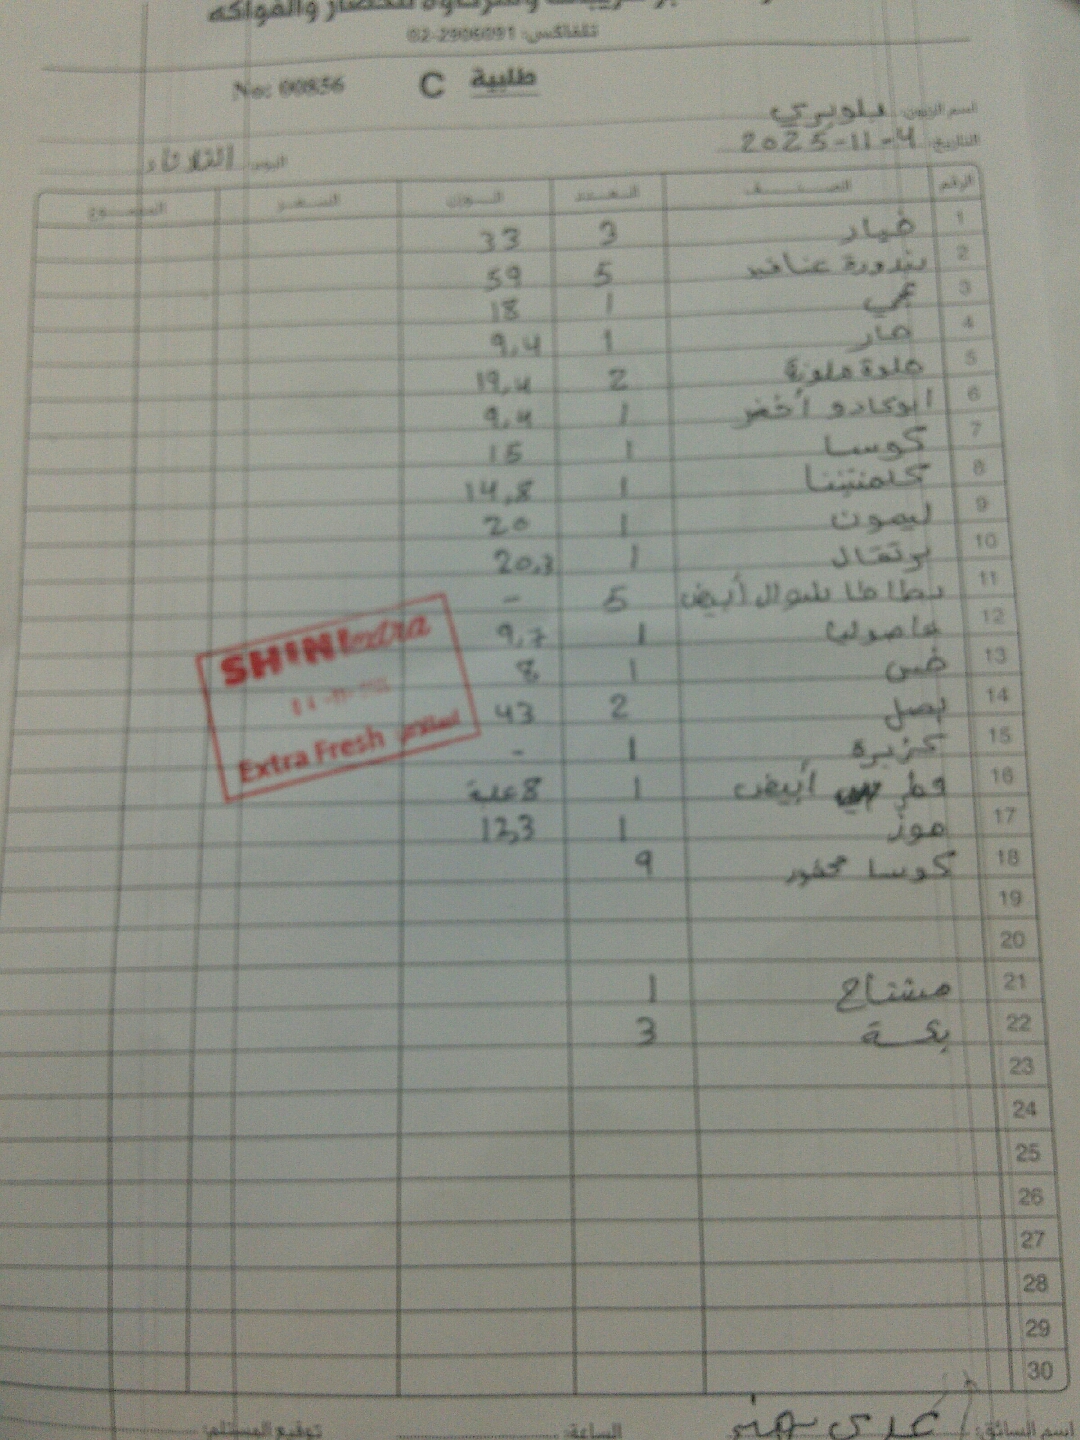 للخضار والفواكه
تلفاكس: 02-2906091
طلبية C No: 00856
اسم الزبون: بلوبري
التاريخ: 4-11-2025
اليوم: الثلاثاء
الرقم الصنف العدد الوزن السعر المجموع
1 خيار 3 33
2 بندورة عناقيد 5 59
3 1 18
4 حار 1 9,4
5 حلوة ملونة 2 19,4
6 افوكادو أخضر 1 9,4
7 كوسا 1 15
8 كلمنتينا 1 14,8
9 ليمون 1 20
10 برتقال 1 20,3
11 بطاطا شوال أبيض 5 -
12 فاصوليا 1 9,7
13 خس 1 8
14 بصل 2 43
15 كزبرة 1 -
16 فطر أبيض 1 8 علبة
17 موز 1 12,3
18 كوسا محفور 9
19
20
21 مشتاح 1
22 بكسة 3
23
24
25
26
27
28
29
30
SHINI extra
Extra Fresh
اسم السائق: عدي
الساعة:
توقيع المستلم: